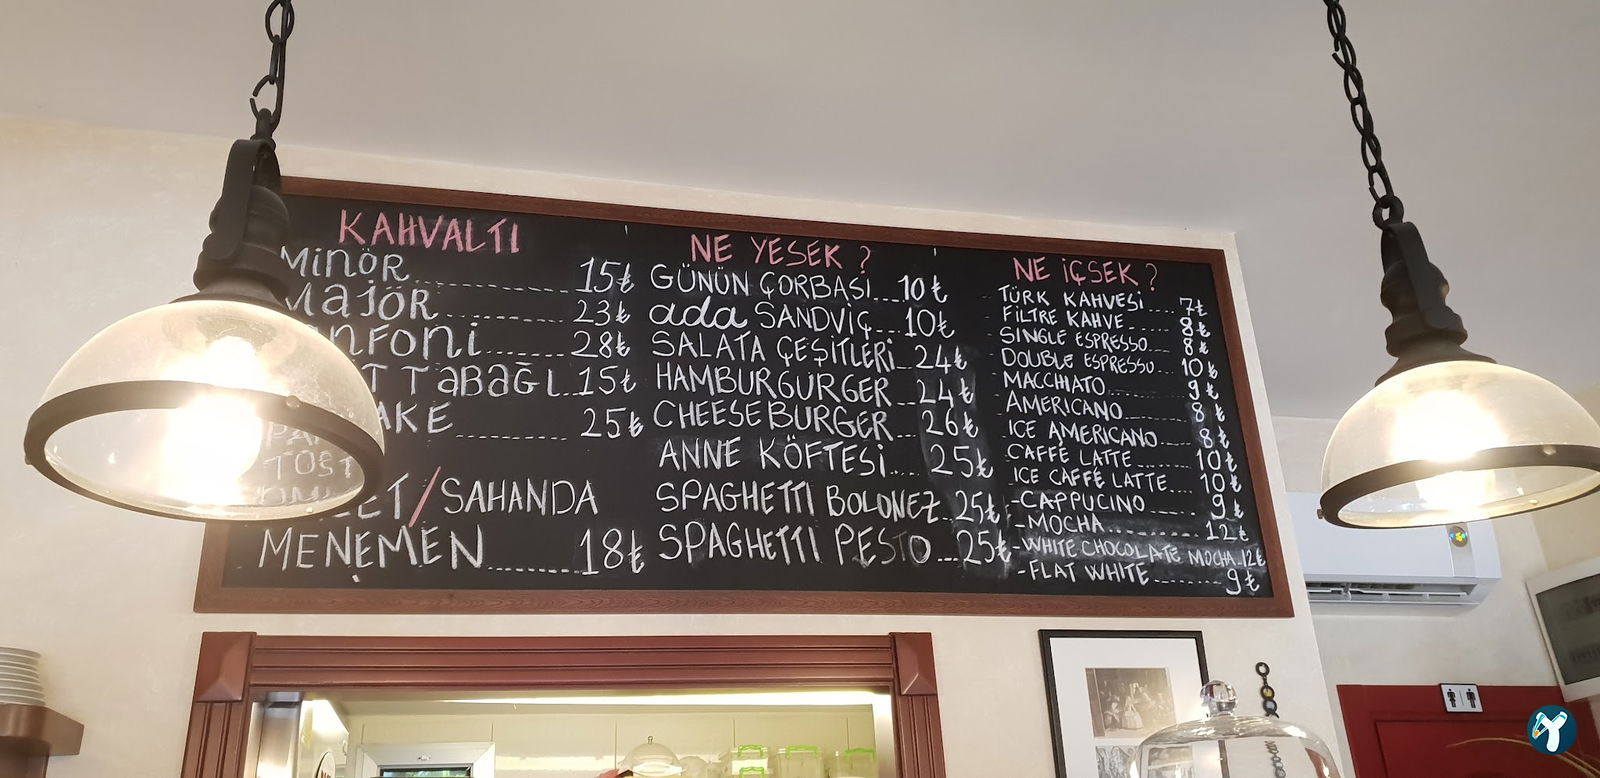 KAHVALTI
MİNÖR 15₺
MaJÖR 23₺
28₺
TABAĞI 15₺
25₺
TOST
/SAHANDA
MENEMEN 18₺
NE YESEK ?
GÜNÜN ÇORBASI 10₺
ada SANDVİÇ 10₺
SALATA ÇEŞİTLERİ 24₺
HAMBURGURGER 24₺
CHEESEBURGER 26₺
ANNE KÖFTESİ 25₺
SPAGHETTI BOLONEZ 25₺
SPAGHETTI PESTO 25₺
NE İÇSEK ?
TÜRK KAHVESİ 7₺
FİLTRE KAHVE 8₺
SINGLE ESPRESSO 8₺
DOUBLE ESPRESSO 10₺
MACCHIATO 9₺
AMERICANO 8₺
ICE AMERICANO 8₺
CAFFE LATTE 10₺
ICE CAFFE LATTE 10₺
-CAPPUCINO 9₺
-MOCHA 12₺
-WHITE CHOCOLATE MOCHA 12₺
-FLAT WHITE 9₺